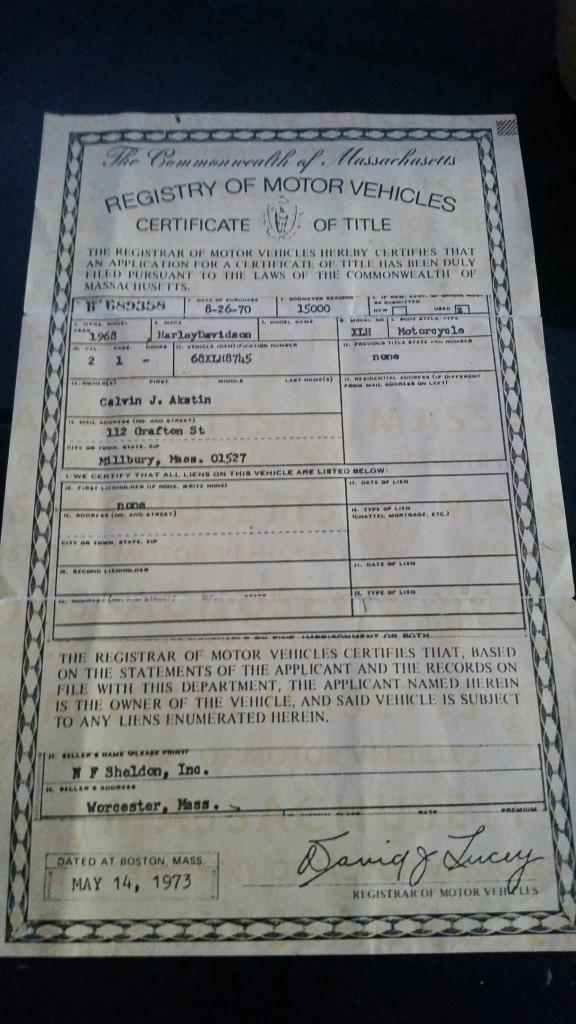 The Commonwealth of Massachusetts
REGISTRY OF MOTOR VEHICLES
CERTIFICATE OF TITLE
THE REGISTRAR OF MOTOR VEHICLES HEREBY CERTIFIES THAT
AN APPLICATION FOR A CERTIFICATE OF TITLE HAS BEEN DULY
FILED PURSUANT TO THE LAWS OF THE COMMONWEALTH OF
MASSACHUSETTS.
DATE OF PURCHASE ODOMETER READING
689358 8-26-70 15000 NEW USED
MAKE MODEL NAME BODY STYLE, TYPE
YEAR 1968 HarleyDavidson XLH Motorcycle
CYL PASS. DOORS 11. VEHICLE IDENTIFICATION NUMBER 12. PREVIOUS TITLE STATE AND NUMBER
2 1 - 68XLH8745 none
OWNER(S) FIRST MIDDLE LAST NAME(S) RESIDENTIAL ADDRESS (IF DIFFERENT
FROM MAIL ADDRESS ON LEFT)
Calvin J. Akstin
MAIL ADDRESS (NO. AND STREET)
112 Grafton St
CITY OR TOWN, STATE, ZIP
Millbury, Mass. 01527
I WE CERTIFY THAT ALL LIENS ON THIS VEHICLE ARE LISTED BELOW:
FIRST LIENHOLDER (IF NONE, WRITE NONE) 17. DATE OF LIEN
none
ADDRESS (NO. AND STREET) TYPE OF LIEN
(CHATTEL MORTGAGE, ETC.)
CITY OR TOWN, STATE, ZIP
SECOND LIENHOLDER DATE OF LIEN
TYPE OF LIEN
IMPRISONMENT OR BOTH
THE REGISTRAR OF MOTOR VEHICLES CERTIFIES THAT, BASED
ON THE STATEMENTS OF THE APPLICANT AND THE RECORDS ON
FILE WITH THIS DEPARTMENT, THE APPLICANT NAMED HEREIN
IS THE OWNER OF THE VEHICLE, AND SAID VEHICLE IS SUBJECT
TO ANY LIENS ENUMERATED HEREIN.
SELLER'S NAME (PLEASE PRINT)
N F Sheldon, Inc.
SELLER'S ADDRESS
Worcester, Mass.
DATE PREMIUM
DATED AT BOSTON, MASS.
MAY 14, 1973
David J Lucey
REGISTRAR OF MOTOR VEHICLES